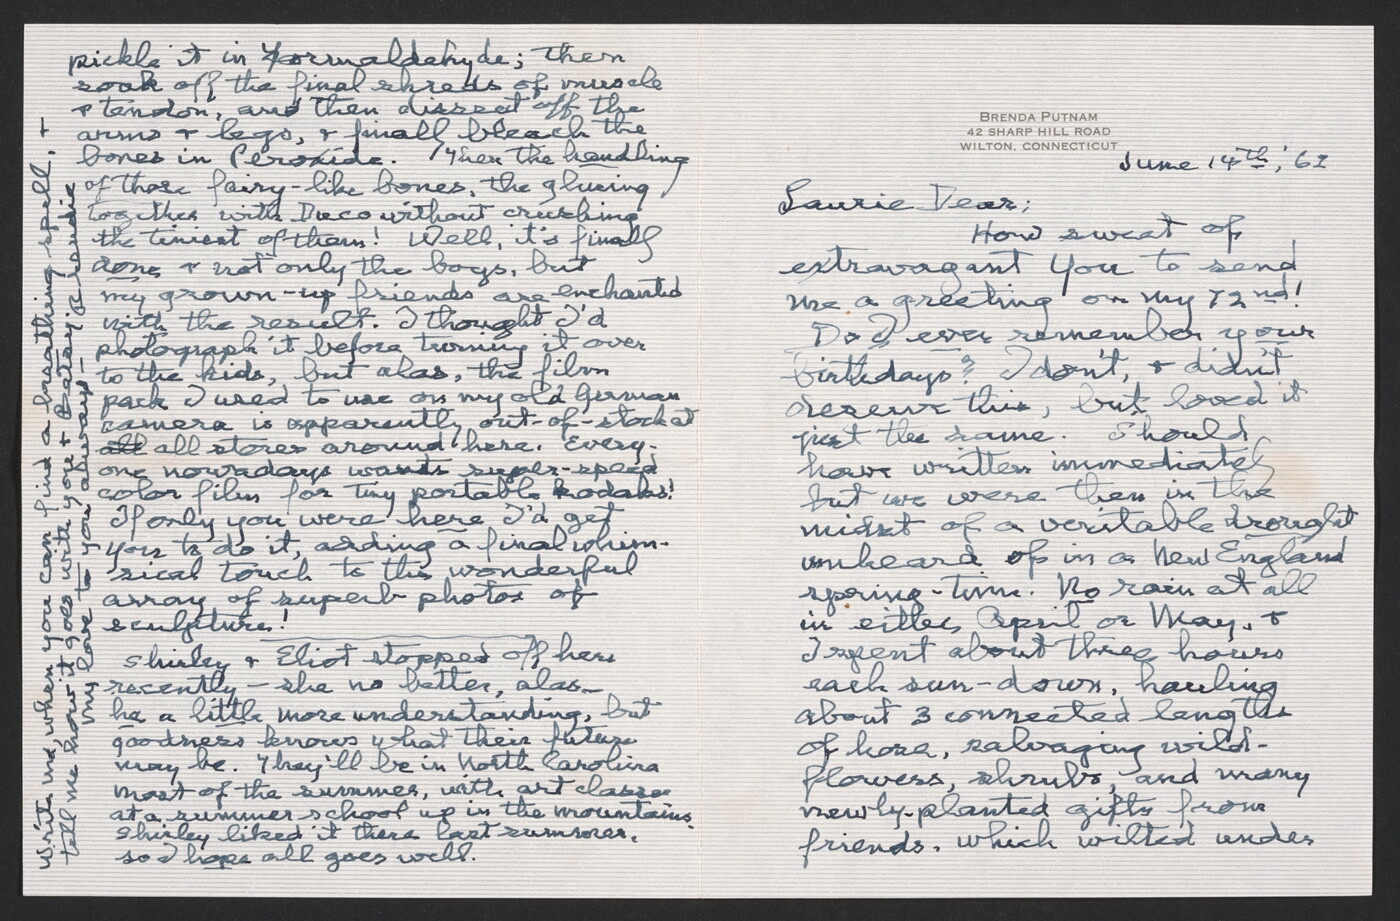 BRENDA PUTNAM
42 SHARP HILL ROAD
WILTON, CONNECTICUT
June 14th, '62
Laurie Dear;
How sweet of
extravagant you to send
me a greeting on my 72nd!
Do I ever remember your
birthdays? I don't, & didn't
deserve this, but loved it
just the same. Should
have written immediately
but we were then in the
midst of a veritable drought
unheard of in a New England
spring-time. No rain at all
in either April or May, &
I spent about three hours
each sun-down, hauling
about 3 connected lengths
of hose, salvaging wild-
flowers, shrubs, and many
newly-planted gifts from
friends, which wilted under
pickle it in Formaldehyde; then
soak off the final shreds of muscle
& tendon, and then dissect off the
arms & legs, & finall bleach the
bones in Peroxide. Then the handling
of those fairy-like bones, the glueing
together with Duco without crushing
the tiniest of them! Well, it's finally
done & not only the boys, but
my grown-up friends are enchanted
with the result. I thought I'd
photograph it before turning it over
to the kids, but alas, the film
pack I used to use on my old German
camera is apparently out-of-stock at
all all stores around here. Every-
one nowadays wants super-speed
color film for tiny portable kodaks!
If only you were here I'd get
you to do it, adding a final whim-
sical touch to this wonderful
array of superb photos of
sculpture!
Shirley & Eliot stopped off here
recently - she no better, alas -
he a little more understanding, but
goodness knows what their future
may be. They'll be in North Carolina
most of the summer, with art classes
at a summer school up in the mountains.
Shirley liked it there last summer,
so I hope all goes well.
Write me, when you can find a breathing spell, &
tell me how it goes with you & Betsy.
my love to you, always -